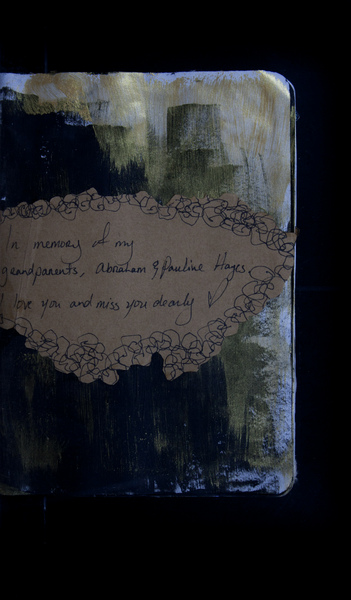 In memory of my
grandparents, Abraham & Pauline Hayes.
I love you and miss you dearly ♡